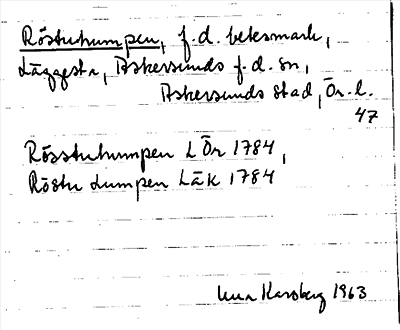 Röstuhumpen, f.d. betesmark,
Läggesta, Askersunds f.d. sn,
Askersunds stad, Ör. l.
47
Rösstuhumpen LÖr 1784,
Röstu Lumpen LäK 1784
Lena Karsberg 1963